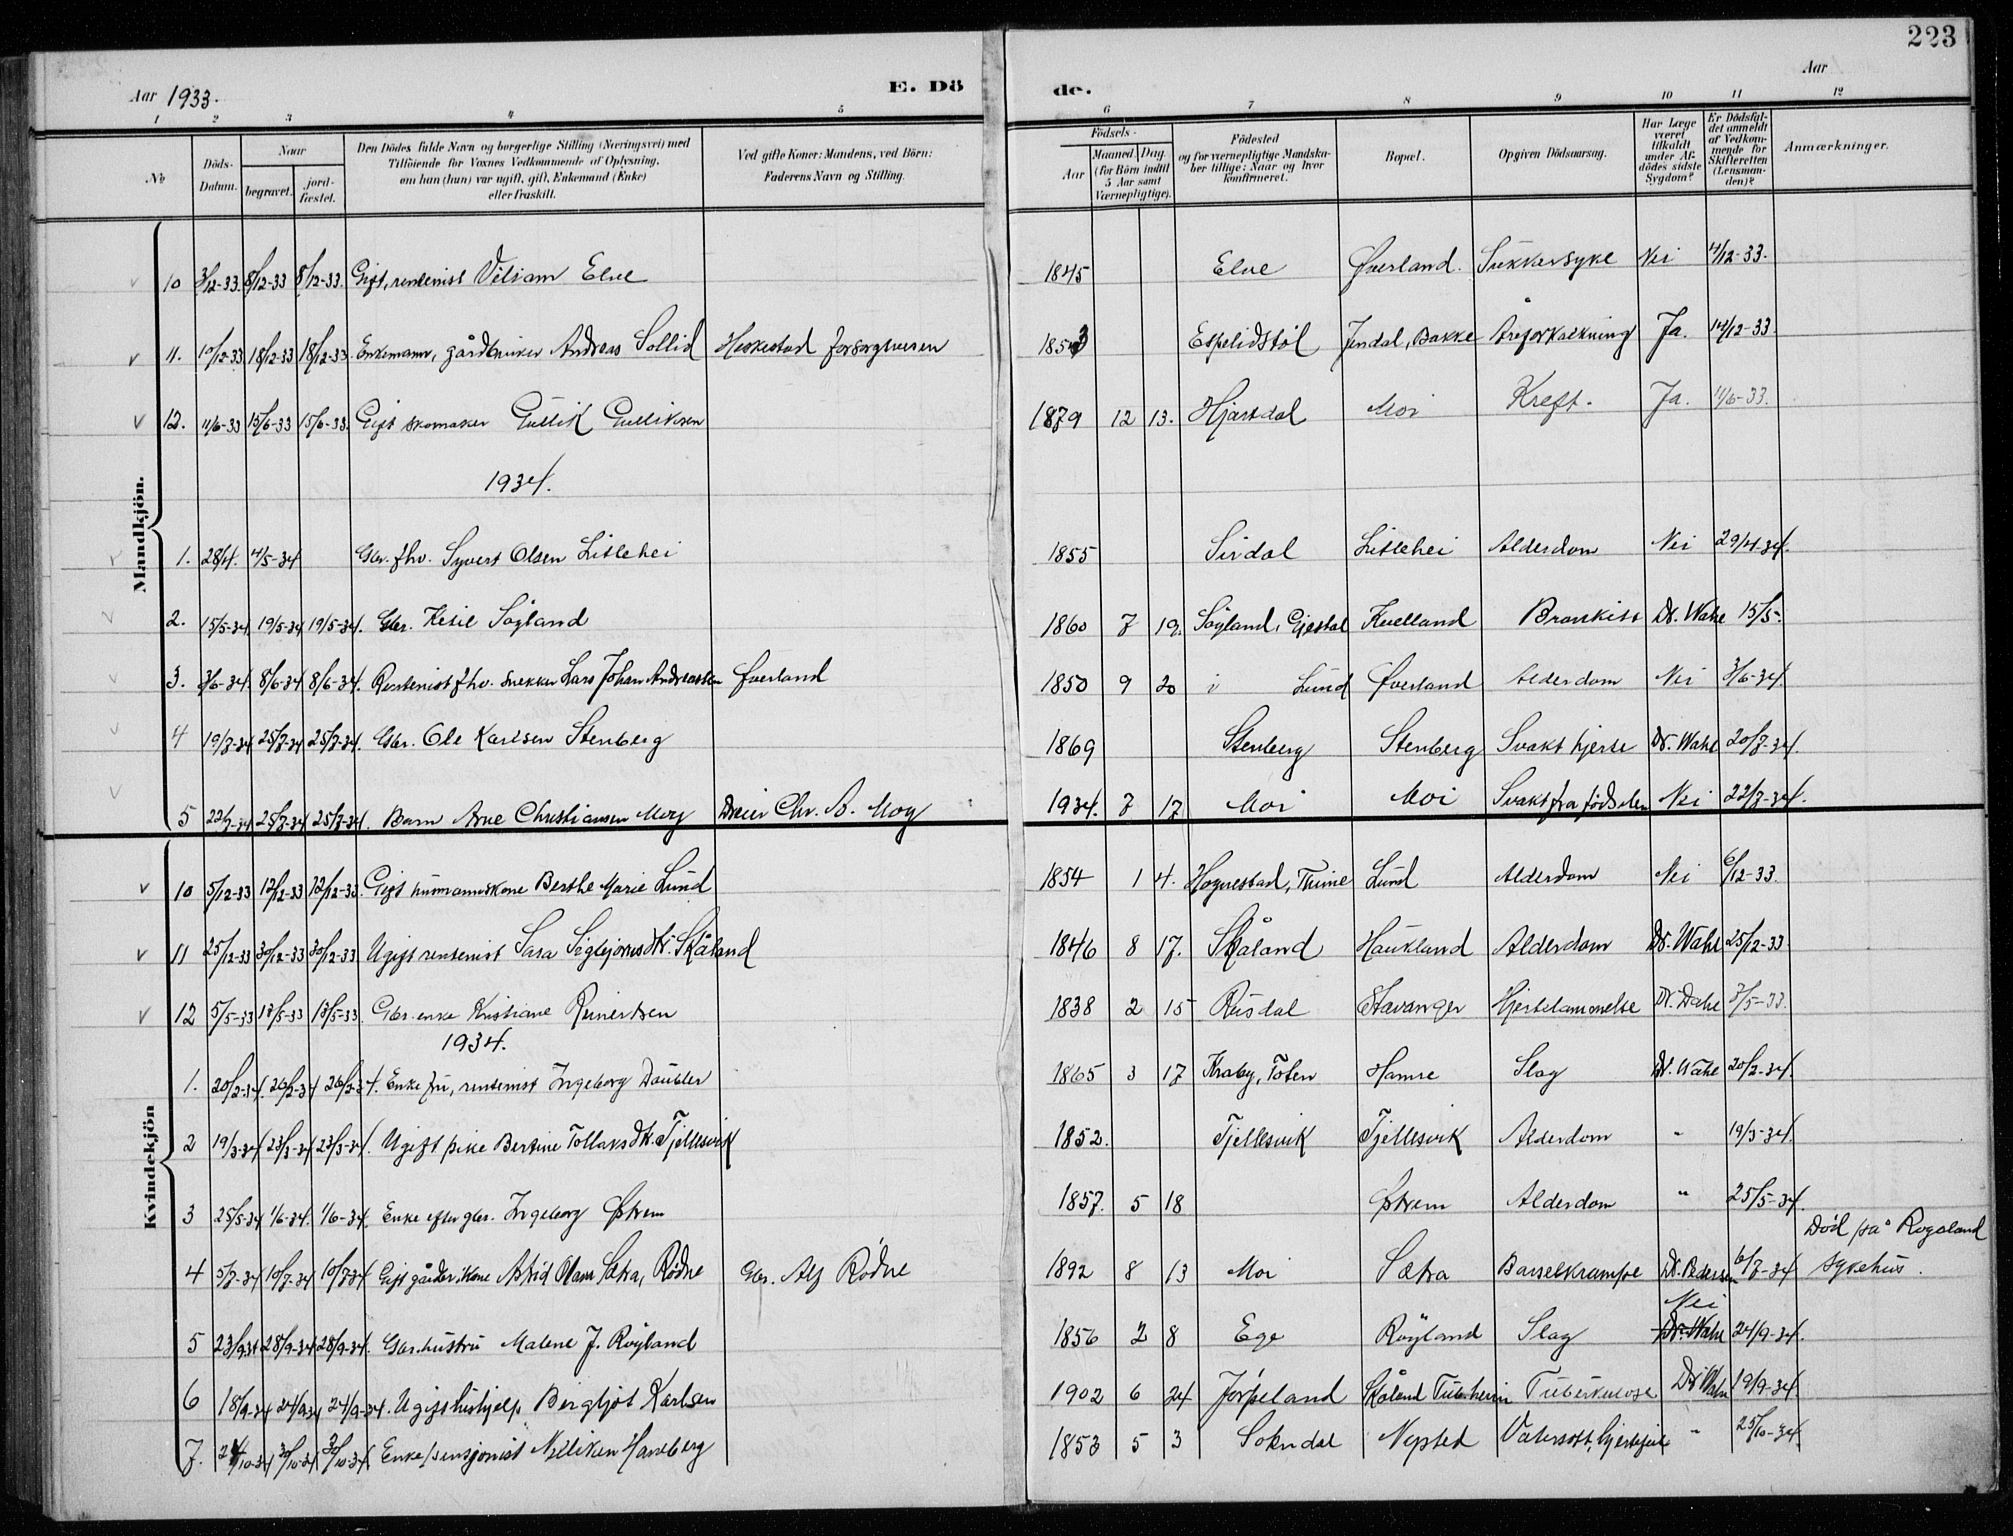 223
Aar 1933.
E. Dö
de.
Aar
1 2 3 4 5 6 7 8 9 10 11 12
No
Döds-Datum.
Naar
begravet.
jord-fæstet.
Den Dödes fulde Navn og borgerlige Stilling (Næringsvei) med
Tilföiende for Voxnes Vedkommende af Oplysning,
om han (hun) var ugift, gift, Enkemand (Enke)
eller fraskilt.
Ved gifte Koner: Mandens, ved Börn:
Faderens Navn og Stilling.
Födsels-
Aar
Maaned. Dag.
(for Börn indtil
5 Aar samt
Værnepligtige).
Födested
og for værnepligtige Mandska-
ber tillige: Naar og hvor
konfirmeret.
Bopæl.
Opgiven Dödsaarsag.
Har Læge
været
tilkaldt
under Af-
dödes sidste
Sygdom?
Er Dödsfal-
det anmeldt
af Vedkom-
mende for
Skifteretten
(Lensman-
den)?
Anmærkninger.
Mandkjön.
10 3/12-33. 8/12-33 8/12-33. Gift, rentenist Viliam Elve 1845 Elve Øverland. Sukkersyke Nei 4/12-33.
11. 10/12-33 18/12-33 18/12-33 Enkemann, gårdbruker Andreas Sollid Heskestad forsorgsvesen 1853 Espelidstøl Jendal, Bakke Åreforkalkning Ja. 14/12-33
12. 11/6-33 15/6-33 15/6-33. Gift skomaker Gullik Gulliksen 1879 12 13. Hjartdal Moi Kreft. Ja. 11/6-33.
1934.
1. 28/4. 4/5-34 Gbr. fhv. Syvert Olsen Litlehei 1855 Sirdal Litlehei Alderdom Nei 29/4-34.
2. 15/5-34. 19/5-34 19/5-34. Gbr. Ketil Søyland 1860 7 19. Søyland, Gjestal Kvelland Bronkist Dr. Wahl 15/5-
3. 3/6-34. 8/6-34 8/6-34. Rentenist fhv. snekker Lars Johan Andreassen Øverland 1850 9 20 i Lund Øverland Alderdom Nei 3/6-34.
4 19/7-34 25/7-34 25/7-34. Gbr. Ole Karlsen Stenberg 1869 Stenberg Stenberg Svakt hjerte Dr. Wahl 20/7-34.
5 22/7-34 25/7-34 25/7-34. Barn Arne Christiansen Moy Dreier Chr. A. Moy 1934. 7 17 Moi Moi Svakt fra fødselen Nei 22/7-34.
Kvindekjön
10 5/12-33 12/12-33 12/12-33. Gift husmannskone Berthe Marie Lund 1854 1 4. Hognestad, Thime Lund Alderdom Nei 6/12-33.
11 25/12-33 30/12-33 30/12-33. Ugift rentenist Sara Sigbjørnsdtr. Skåland 1846 8 17. Skåland Haukland Alderdom Dr. Wahl 25/12-33
12 5/5-33 13/5-33 13/5-33. Gbr. enke Kristiane Reinertsen 1838 2 15 Rusdal Stavanger Hjertelammelse Dr. Dahl 3/5-33.
1934.
1. 20/2-34. 26/2-34 26/2-34. Enke fru, rentenist Ingeborg Daubler 1865 3 17 Kraby, Toten Hamre Slag Dr. Wahl 20/2-34.
2 19/3-34 23/3-34 23/3-34. Ugift pike Bertine Tollaksdtr. Tjellesvik 1852. Tjellesvik Tjellesvik Alderdom " 19/3-34.
3 25/5-34 1/6-34. 1/6-34. Enke efter gbr. Ingeborg Østrem 1857. 5 18 Østrem Alderdom " 25/5-34.
4 5/7-34 10/7-34 10/7-34 Gift gårdbr. kone Astrid Sætra, Rødne Gbr. Alf Rødne 1892 8 13 Moi Sætra Barselkrampe Dr. Pedersen 6/7-34 Død på Rogaland sykehus.
5 23/9-34 28/9-34 28/9-34. Gbr. hustru Malene J. Røyland 1856 2 8 Ege Røyland Slag Nei Dr. Wahl 24/9-34.
6 18/9-34 24/9-34 24/9-34. Ugift hushjelp Bergljot Karlsen 1902 6 24 Jørpeland Skåland Tub.heim Tuberkulose Dr. Wahl 19/9-34.
7. 24/10-34 30/10-34 30/10-34. Enke/pensjonist Milliken Hamberg 1853 5 3 Sokndal Nysted Vatersott, hjertefeil " 25/10-34.